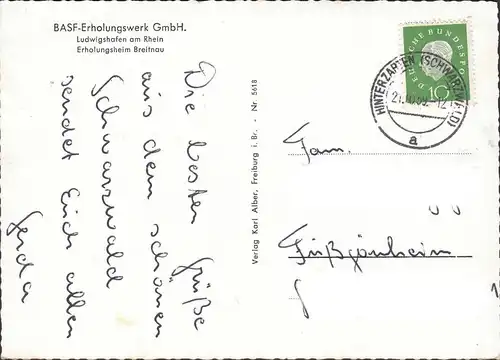 BASF-Erholungswerk GmbH.
Ludwigshafen am Rhein
Erholungsheim Breitnau
Die besten Grüße
aus dem schönen
Schwarzwald
sendet Euch allen
Gerda
Verlag Karl Alber, Freiburg i. Br. - Nr. 5618
DEUTSCHE BUNDESPOST
10
HINTERZARTEN (SCHWARZWALD)
a
Fam.
Fußgönheim